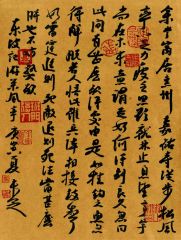 余嘗寓居惠州嘉祐寺縱步松風
亭下足力疲乏思欲就林止息望亭宇
尚在木末意謂是如何得到良久忽曰
此間有甚麼歇不得處由是如掛鉤之魚忽
得解脫若人悟此雖兵陣相接鼓聲
如雷霆進則死敵退則死法當甚麼
時也不妨熟歇
東坡記游松風亭 庚寅夏